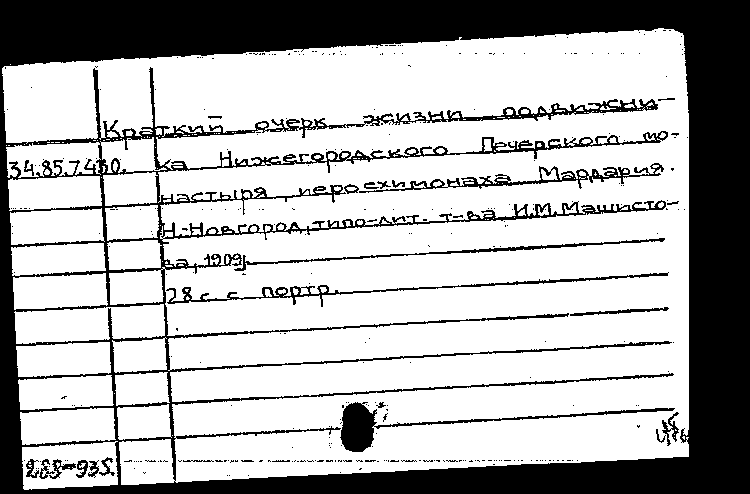 Краткий очерк жизни подвижни-
34.85.7.430. ка Нижегородского Печерского мо-
настыря, иеросхимонаха Мардария.
Н.-Новгород, типо-лит. т-ва И.М.Машисто-
ва, 1909.
28 с. с портр.
288-935.